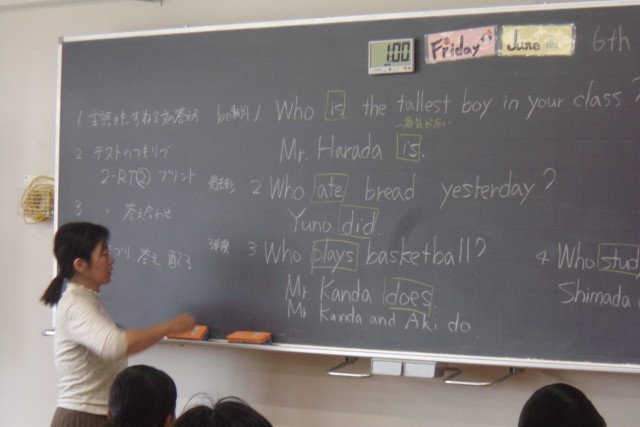 1:00
Friday
June
6th
1 主語をたずねる文の答え方
be動詞 1 Who is the tallest boy in your class?
一番背が高い
Mr. Harada is.
2 テストのつもりで
2-RT② プリント
過去形 2 Who ate bread yesterday?
Yuno did.
3 答え合わせ
3 Who plays basketball?
Mr. Kanda does.
Mr. Kanda and Aki do
4 Who study
Shimada